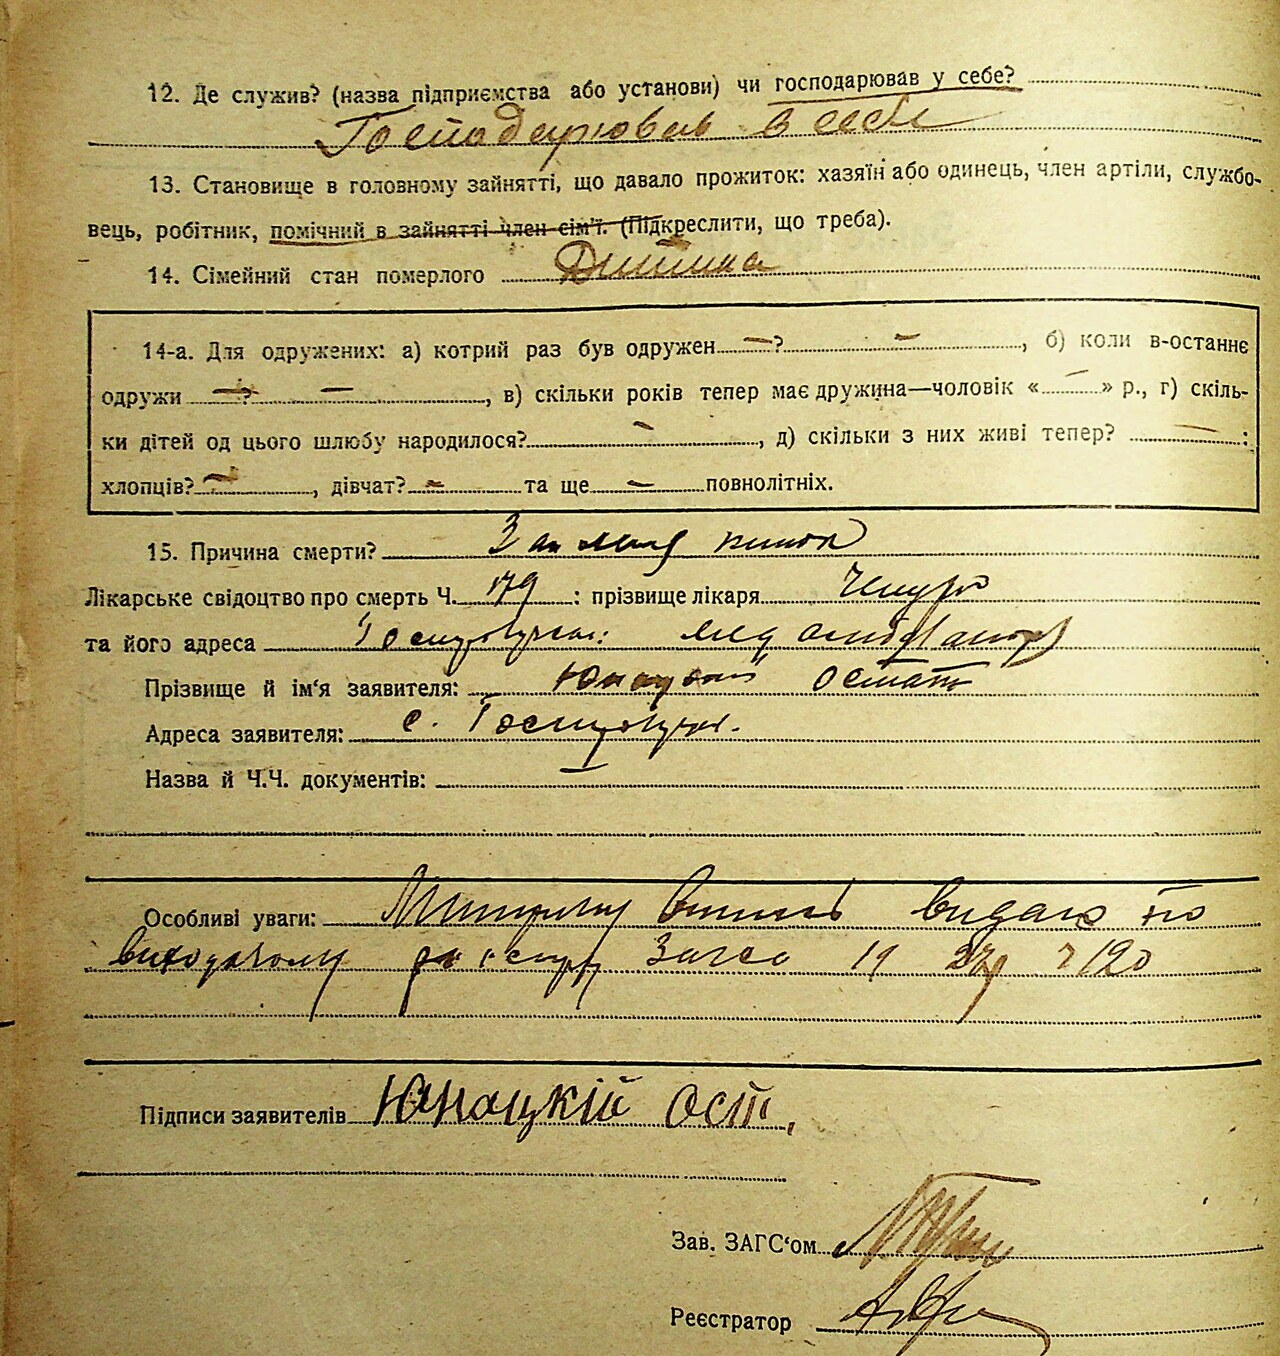 12. Де служив? (назва підприємства або установи) чи господарював у себе?
Господарював в себе
13. Становище в головному зайнятті, що давало прожиток: хазяїн або одинець, член артіли, службо-
вець, робітник, помічний в зайнятті член сім'ї. (Підкреслити, що треба).
14. Сімейний стан померлого Дитина
14-а. Для одружених: а) котрий раз був одружен — ? —, б) коли в-останнє
одружи — ? —, в) скільки років тепер має дружина—чоловік « — » р., г) скіль-
ки дітей од цього шлюбу народилося? —, д) скільки з них живі тепер? — :
хлопців? —, дівчат? — та ще — повнолітніх.
15. Причина смерти?
Лікарське свідоцтво про смерть Ч. 179 : прізвище лікаря
та його адреса
Прізвище й ім'я заявителя: Юнацкий Остап
Адреса заявителя: с.
Назва й Ч.Ч. документів: —
Особливі уваги: видано по
виходячому Загса 19
Підписи заявителів Юнацкій Ост,
Зав. ЗАГС'ом
Реєстратор